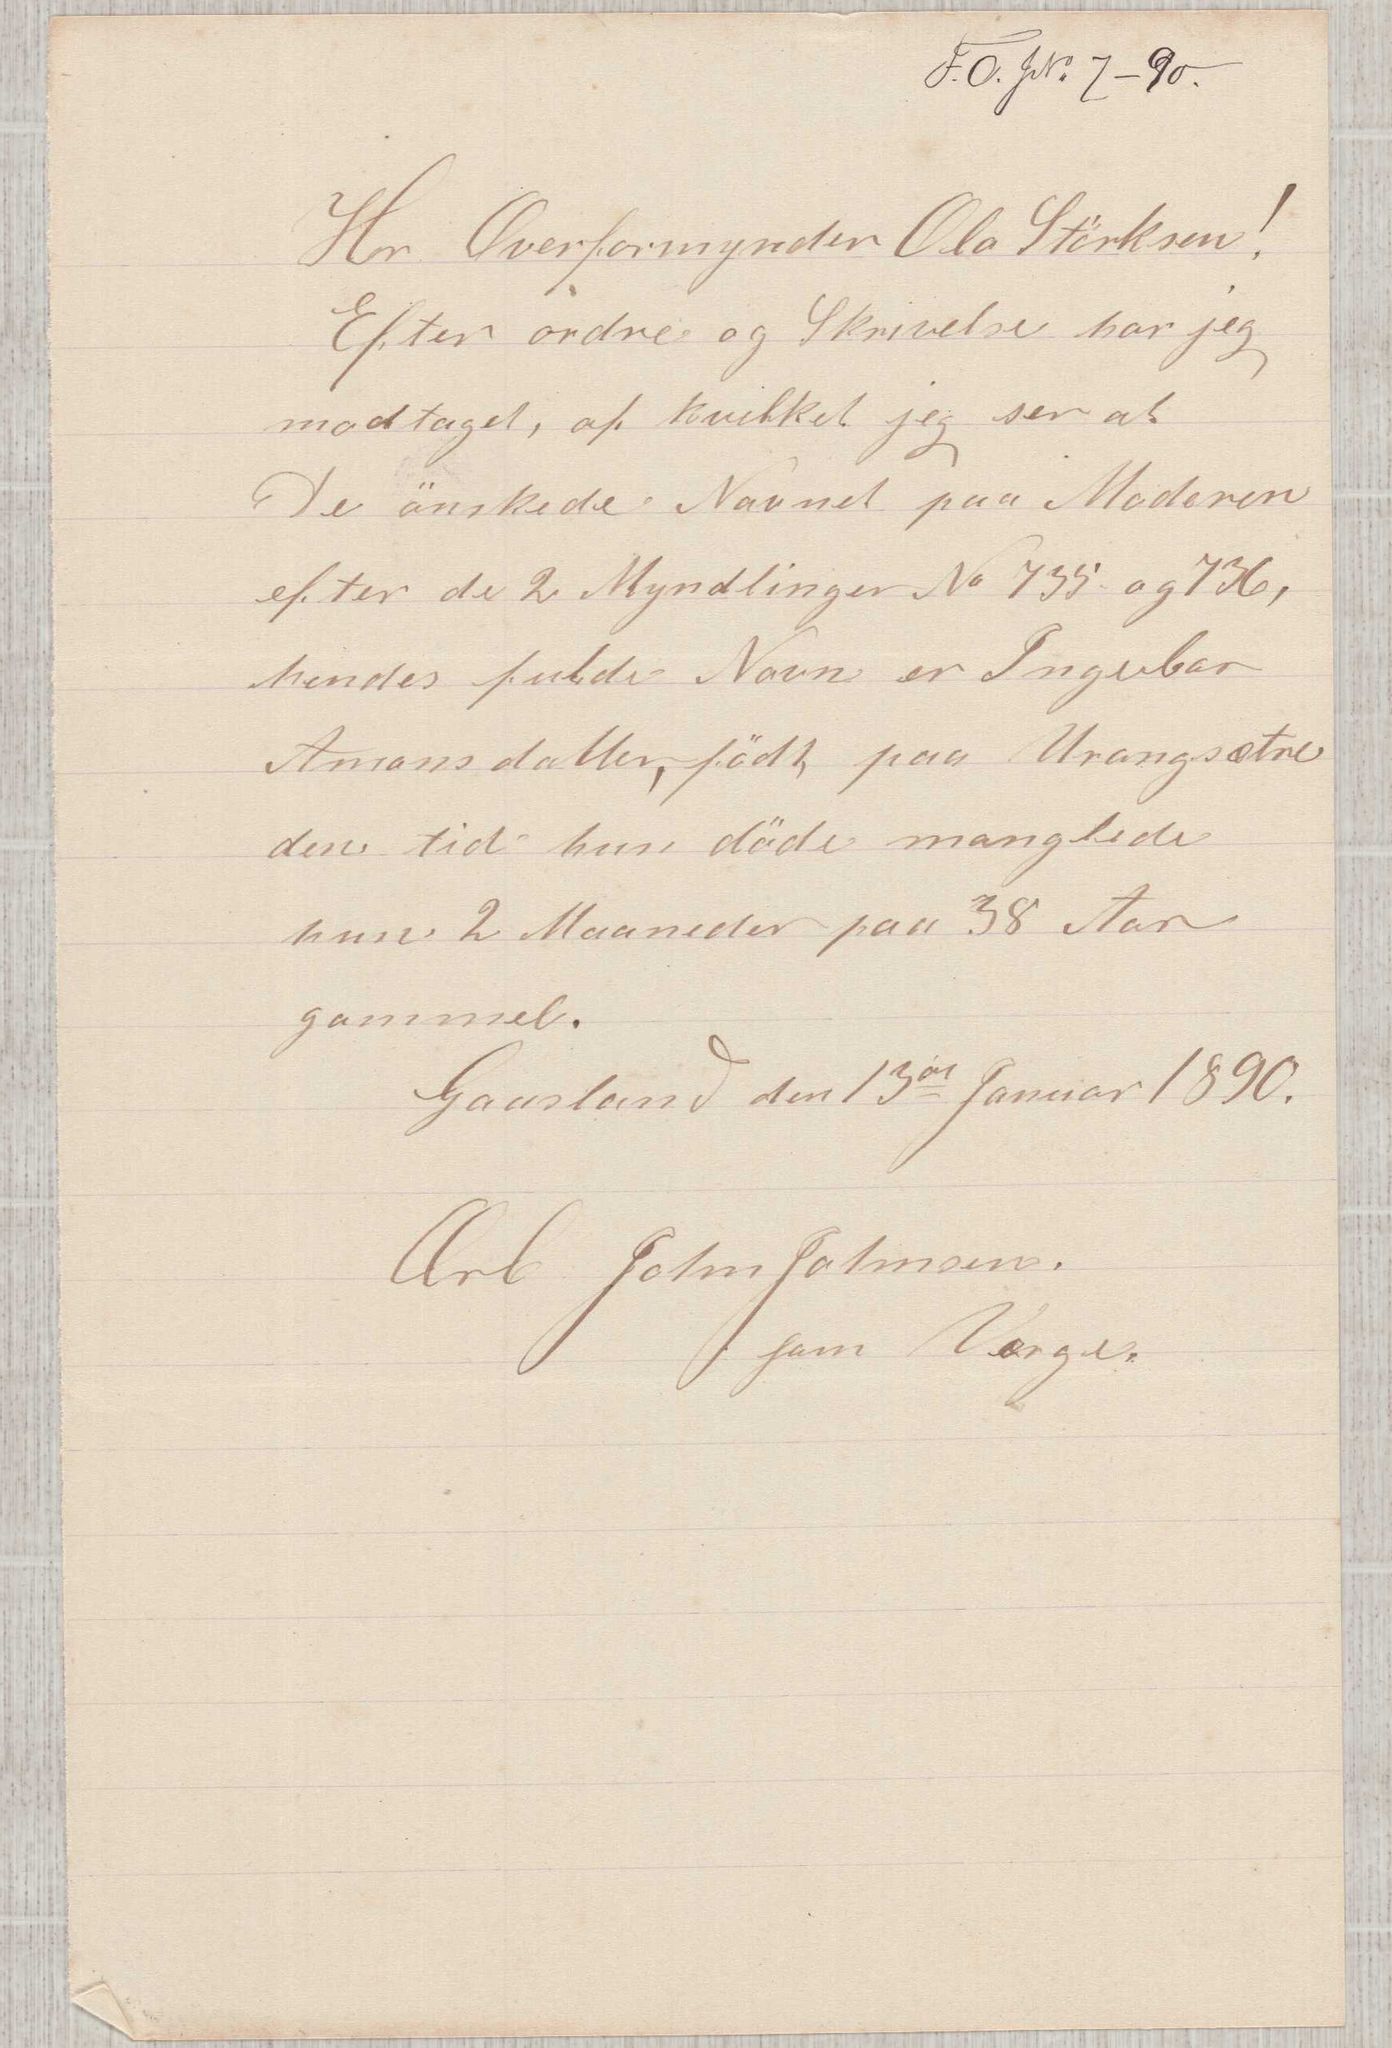 F.O. JNo. 7-90.
Hr Overformynder Ola Störksen!
Efter ordre og Skrivelse har jeg
modtaget, af hvilket jeg ser at
De önskede Navnet paa Moderen
efter de 2 Myndlinger No 735 og 736,
hendes fulde Navn er Ingebor
Amonsdatter, födt paa Urangsætre
den tid hun döde manglede
hun 2 Maaneder paa 38 Aar
gammel.
Gaasland den 13de Januar 1890.
Ærb John Johnsen.
som Verge.